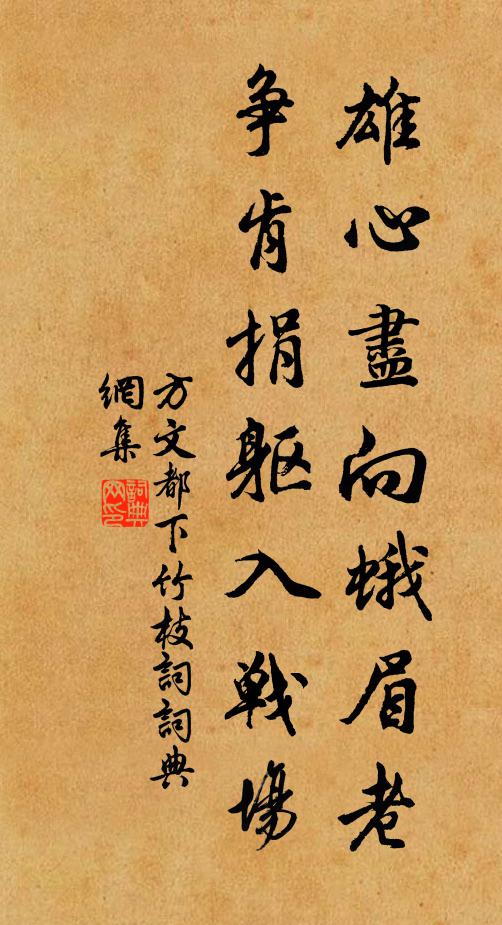 雄心盡向蛾眉老
爭肯捐軀入戰場
方文都下竹枝詞詞典
網集
詞典
网印